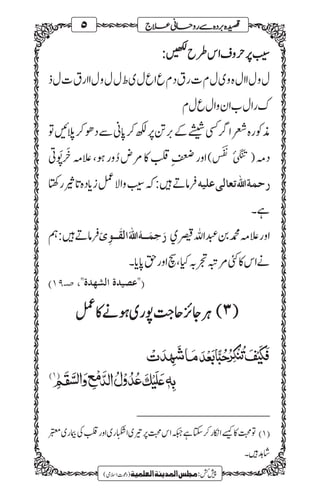 قصیدہ بردہ سے روحانی علاج
۵
بیسن پر حروف اس طرح لکھیں:
ل و ل ا ا ل ہ و ی ل م ت ر ق د م ع ا ع ل ی ط ل ل و ل ا ا ر ق ت ل ذ
ک ر ا ل ب ا ن و ا ل ع ل م
مذکورہ شعر اگر کسی شیشے کے برتن پر لکھ کر پانی سے دھو کر پلائیں تو
دمہ (تنگئ نفس) اور ضعفِ قلب کا مرض دُور ہو، علامہ خَرْپُوتی
رحمۃ اللہ تعالی علیہ فرماتے ہیں: کہ بیسن والا عمل زیادہ تاثیر رکھتا
ہے۔
اور علامہ محمد بن عبد اللہ قیصری رَحِمَہُ اللہُ الْقَوِی فرماتے ہیں: ہم
نے اس کا کئی مرتبہ تجربہ کیا، سچ، اور حق پایا۔
("عصیدۃ الشھدۃ"، صـ۱۹)
(۳) ہر جائز حاجت پوری ہونے کا عمل
فَکَیْفَ تُنْکِرُ حُبًّا بَعْدَ مَا شَھِدَتْ
بِہٖ عَلَیْکَ عُدُوْلُ الدَّمْعِ وَالسَّقَمِ (۱)
(۱) تو محبت کا کیسے انکار کر سکتا ہے جبکہ اس محبت پر تیری اشکباری اور قلب کی بیماری معتبر
شاہد ہیں۔
پیش کش: مجلس المدینۃ العلمیۃ (دعوت اسلامی)